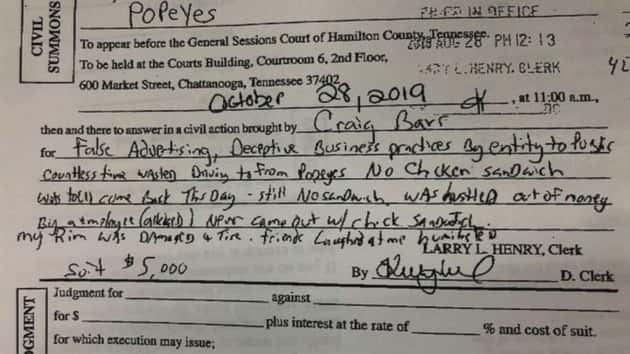 CIVIL SUMMONS
Popeyes
FILED IN OFFICE
To appear before the General Sessions Court of Hamilton County, Tennessee.
2019 AUG 28 PM 12: 13
To be held at the Courts Building, Courtroom 6, 2nd Floor,
L. HENRY, CLERK
600 Market Street, Chattanooga, Tennessee 37402
October 28, 2019, at 11:00 a.m.,
then and there to answer in a civil action brought by Craig Barr
for False Advertising, Deceptive Business practices By entity to Public
Countless time wasted Driving to + From Popeyes No Chcken sandwich
was told come Back This Day - still No sandwich. was hustled out of money
By a employee (alleged) Never came out w/ chick Sandwich.
my Rim was Damaged & Tire. friends Laughed at me
LARRY L. HENRY, Clerk
Suit $5,000
By D. Clerk
Judgment for against
for $ plus interest at the rate of % and cost of suit.
for which execution may issue;